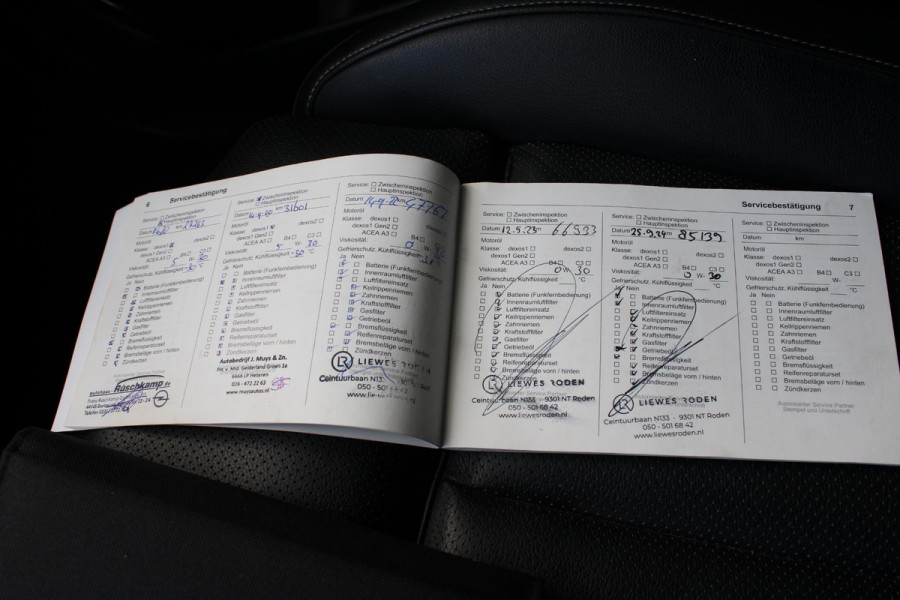 6 Servicebestätigung
Service: Zwischeninspektion
Hauptinspektion
Datum km
Motoröl
Klasse: dexos1 dexos2
dexos1 Gen2
ACEA A3 B4 C3
Viskosität: W-30
Gefrierschutz, Kühlflüssigkeit °C
Ja Nein
Batterie (Funkfernbedienung)
Innenraumluftfilter
Luftfiltereinsatz
Keilrippenriemen
Zahnriemen
Kraftstofffilter
Gasfilter
Getriebeöl
Bremsflüssigkeit
Reifenreparaturset
Bremsbeläge vorn / hinten
Zündkerzen
Rüschkamp.de
Service: Zwischeninspektion
Hauptinspektion
Datum km 31601
Motoröl
Klasse: dexos1 dexos2
dexos1 Gen2
ACEA A3 B4 C3
Viskosität: W-30
Gefrierschutz, Kühlflüssigkeit -30 °C
Ja Nein
Batterie (Funkfernbedienung)
Innenraumluftfilter
Luftfiltereinsatz
Keilrippenriemen
Zahnriemen
Kraftstofffilter
Gasfilter
Getriebeöl
Bremsflüssigkeit
Reifenreparaturset
Bremsbeläge vorn / hinten
Zündkerzen
Autobedrijf J. Muys & Zn.
026 - 472 22 63
www.muysautos.nl
Service: Zwischeninspektion
Hauptinspektion
Datum km
Motoröl
Klasse: dexos1 dexos2
dexos1 Gen2
ACEA A3 B4 C3
Viskosität: 0 W-
Gefrierschutz, Kühlflüssigkeit °C
Ja Nein
Batterie (Funkfernbedienung)
Innenraumluftfilter
Luftfiltereinsatz
Keilrippenriemen
Zahnriemen
Kraftstofffilter
Gasfilter
Getriebeöl
Bremsflüssigkeit
Reifenreparaturset
Bremsbeläge vorn / hinten
Zündkerzen
LR LIEWES RODEN
Ceintuurbaan N133
050 - 501
Servicebestätigung 7
Service: Zwischeninspektion
Hauptinspektion
Datum 12.9.23 km 66923
Motoröl
Klasse: dexos1 dexos2
dexos1 Gen2
ACEA A3 B4 C3
Viskosität: 0 W 30
Gefrierschutz, Kühlflüssigkeit °C
Ja Nein
Batterie (Funkfernbedienung)
Innenraumluftfilter
Luftfiltereinsatz
Keilrippenriemen
Zahnriemen
Kraftstofffilter
Gasfilter
Getriebeöl
Bremsflüssigkeit
Reifenreparaturset
Bremsbeläge vorn / hinten
Zündkerzen
LR LIEWES RODEN
Ceintuurbaan N133 - 9301 NT Roden
050 - 501 68 42
www.liewesroden.nl
Service: Zwischeninspektion
Hauptinspektion
Datum 25.9.24 km 85139
Motoröl
Klasse: dexos1 dexos2
dexos1 Gen2
ACEA A3 B4 C3
Viskosität: 0 W 30
Gefrierschutz, Kühlflüssigkeit °C
Ja Nein
Batterie (Funkfernbedienung)
Innenraumluftfilter
Luftfiltereinsatz
Keilrippenriemen
Zahnriemen
Kraftstofffilter
Gasfilter
Getriebeöl
Bremsflüssigkeit
Reifenreparaturset
Bremsbeläge vorn / hinten
Zündkerzen
LR LIEWES RODEN
Ceintuurbaan N133 - 9301 NT Roden
050 - 501 68 42
www.liewesroden.nl
Service: Zwischeninspektion
Hauptinspektion
Datum km
Motoröl
Klasse: dexos1 dexos2
dexos1 Gen2
ACEA A3 B4 C3
Viskosität: W-
Gefrierschutz, Kühlflüssigkeit °C
Ja Nein
Batterie (Funkfernbedienung)
Innenraumluftfilter
Luftfiltereinsatz
Keilrippenriemen
Zahnriemen
Kraftstofffilter
Gasfilter
Getriebeöl
Bremsflüssigkeit
Reifenreparaturset
Bremsbeläge vorn / hinten
Zündkerzen
Autorisierter Service Partner
Stempel und Unterschrift